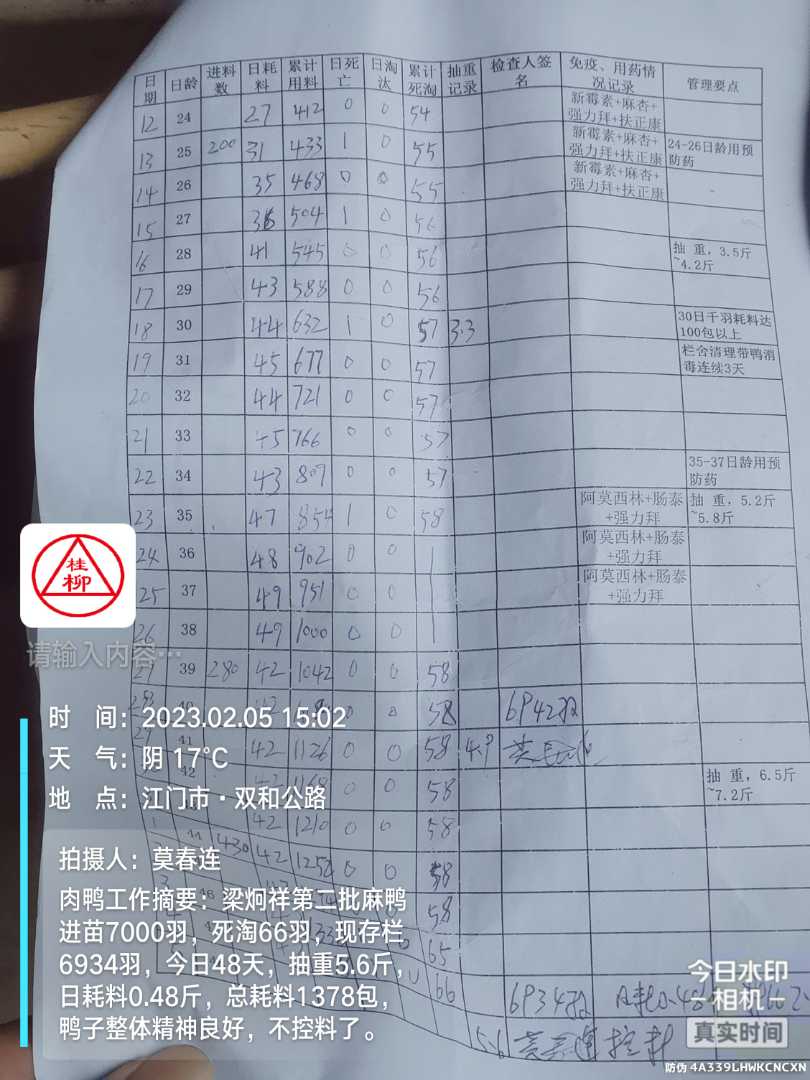 日期 日龄 进料数 日耗料 累计用料 日死亡 日淘汰 累计死淘 抽重记录 检查人签名 免疫、用药情况记录 管理要点
12 24 27 412 0 0 54 新霉素+麻杏+强力拜+扶正康
13 25 200 31 433 1 0 55 新霉素+麻杏+强力拜+扶正康 24-26日龄用预防药
14 26 35 468 0 0 55 新霉素+麻杏+强力拜+扶正康
15 27 36 504 1 0 56
16 28 41 545 0 0 56 抽 重，3.5斤~4.2斤
17 29 43 588 0 0 56
18 30 44 632 1 0 57 3.3 30日千羽耗料达100包以上
19 31 45 677 0 0 57 栏舍清理带鸭消毒连续3天
20 32 44 721 0 0 57
21 33 45 766 0 0 57
22 34 43 807 0 0 57 35-37日龄用预防药
23 35 47 854 1 0 58 阿莫西林+肠泰+强力拜 抽 重，5.2斤~5.8斤
24 36 48 902 0 0 1 阿莫西林+肠泰+强力拜
25 37 49 951 0 0 1 阿莫西林+肠泰+强力拜
26 38 49 1000 0 0 1
27 39 280 42 1042 0 0 58
40 42 0 0 58 6942羽
41 42 1126 0 0 58 4.9
42 42 1168 0 0 58 抽 重，6.5斤~7.2斤
42 1210 0 0 58
430 42 1252 0 0 58
58
65
66 6934羽
5.6
桂柳
请输入内容…
时 间：2023.02.05 15:02
天 气：阴 17℃
地 点：江门市·双和公路
拍摄人：莫春连
肉鸭工作摘要：梁炯祥第二批麻鸭
进苗7000羽，死淘66羽，现存栏
6934羽，今日48天，抽重5.6斤，
日耗料0.48斤，总耗料1378包，
鸭子整体精神良好，不控料了。
今日水印
相机
真实时间
防伪 4A339LHWKCNCXN